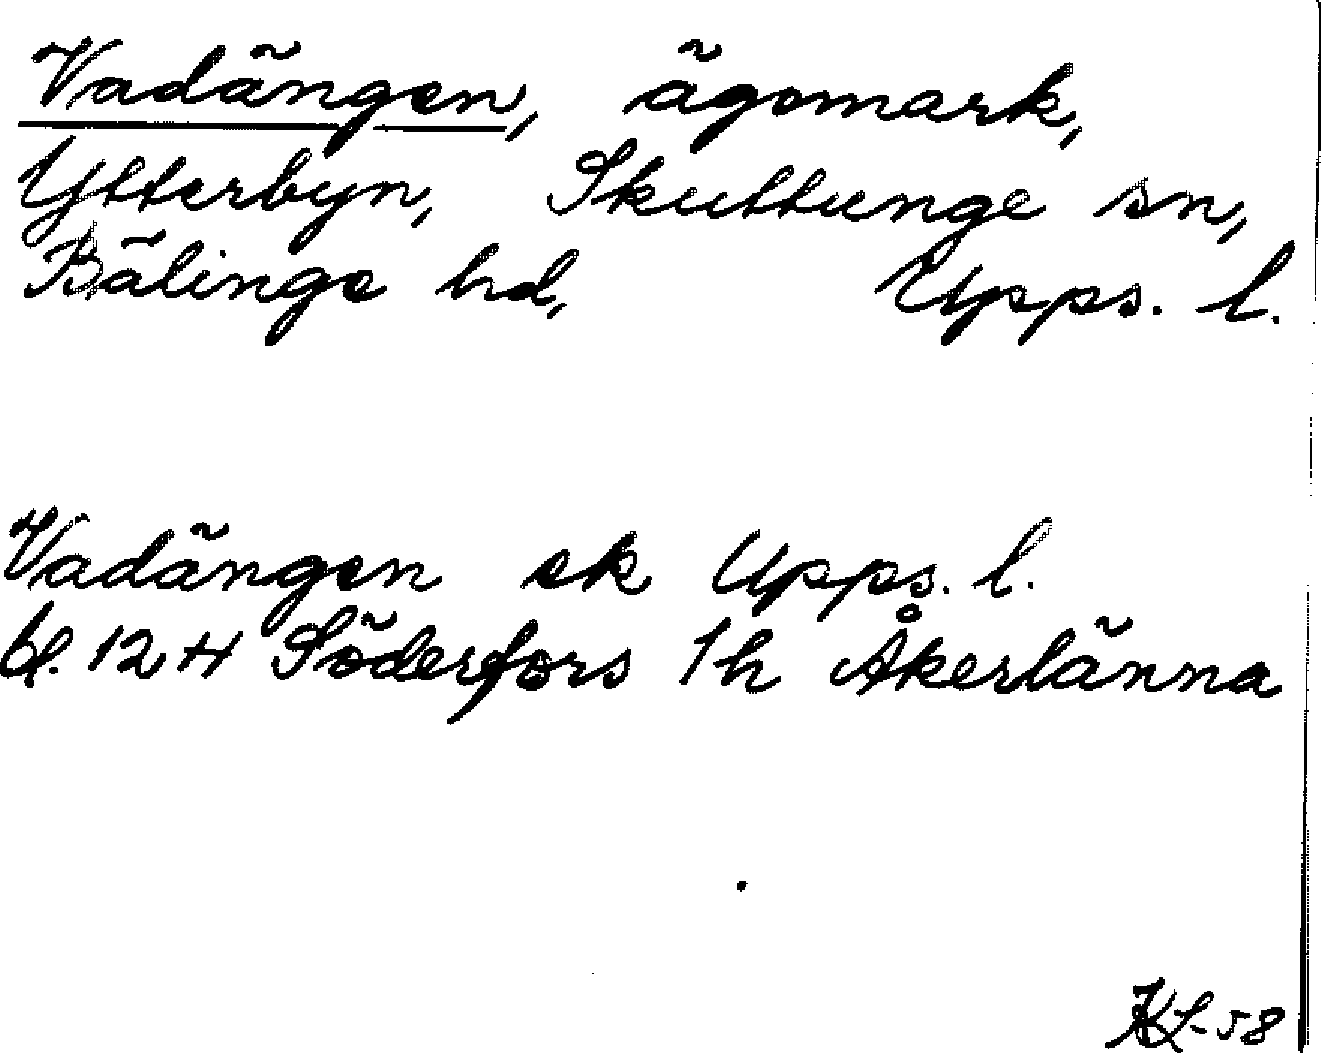 Vadängen, ägomark,
Ytterbyn, Skuttunge sn,
Bälinge hd, Upps. l.
Vadängen ek Upps. l.
bl. 12 H Söderfors 1h Åkerlänna
KL-58